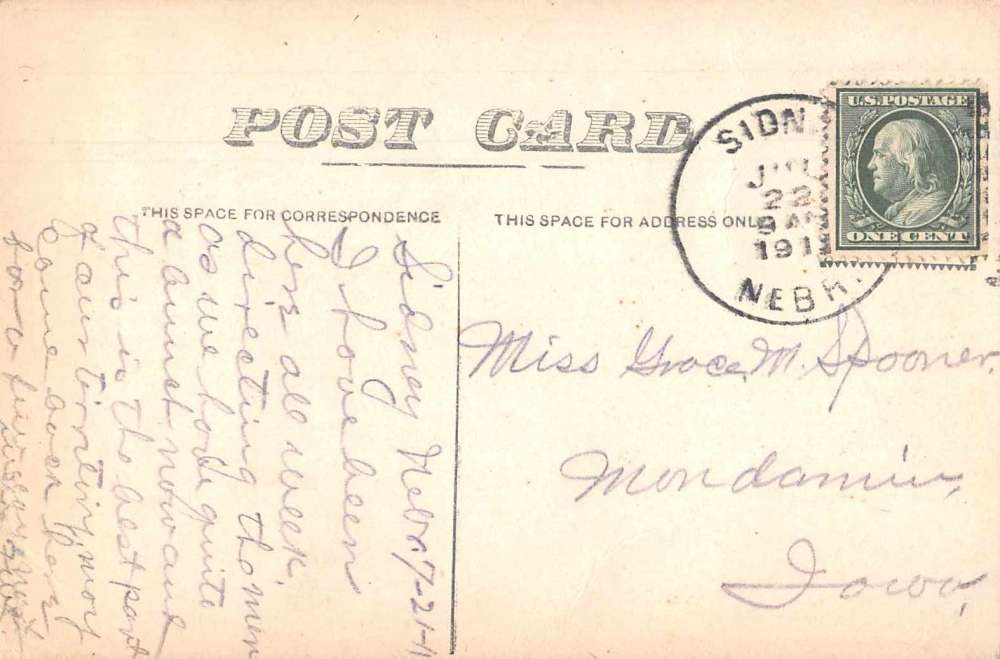 POST CARD
THIS SPACE FOR CORRESPONDENCE
THIS SPACE FOR ADDRESS ONLY
SIDN
JUL
22
191
NEBR.
U.S. POSTAGE
ONE CENT
Sidney Nebr. 7-21-11
I have been
here all week.
directing the men
as we have quite
a bunch now and
this is the best part
of our territory. may
come over here
for a few
Miss Grace M. Spooner.
Mondamin,
Iowa,